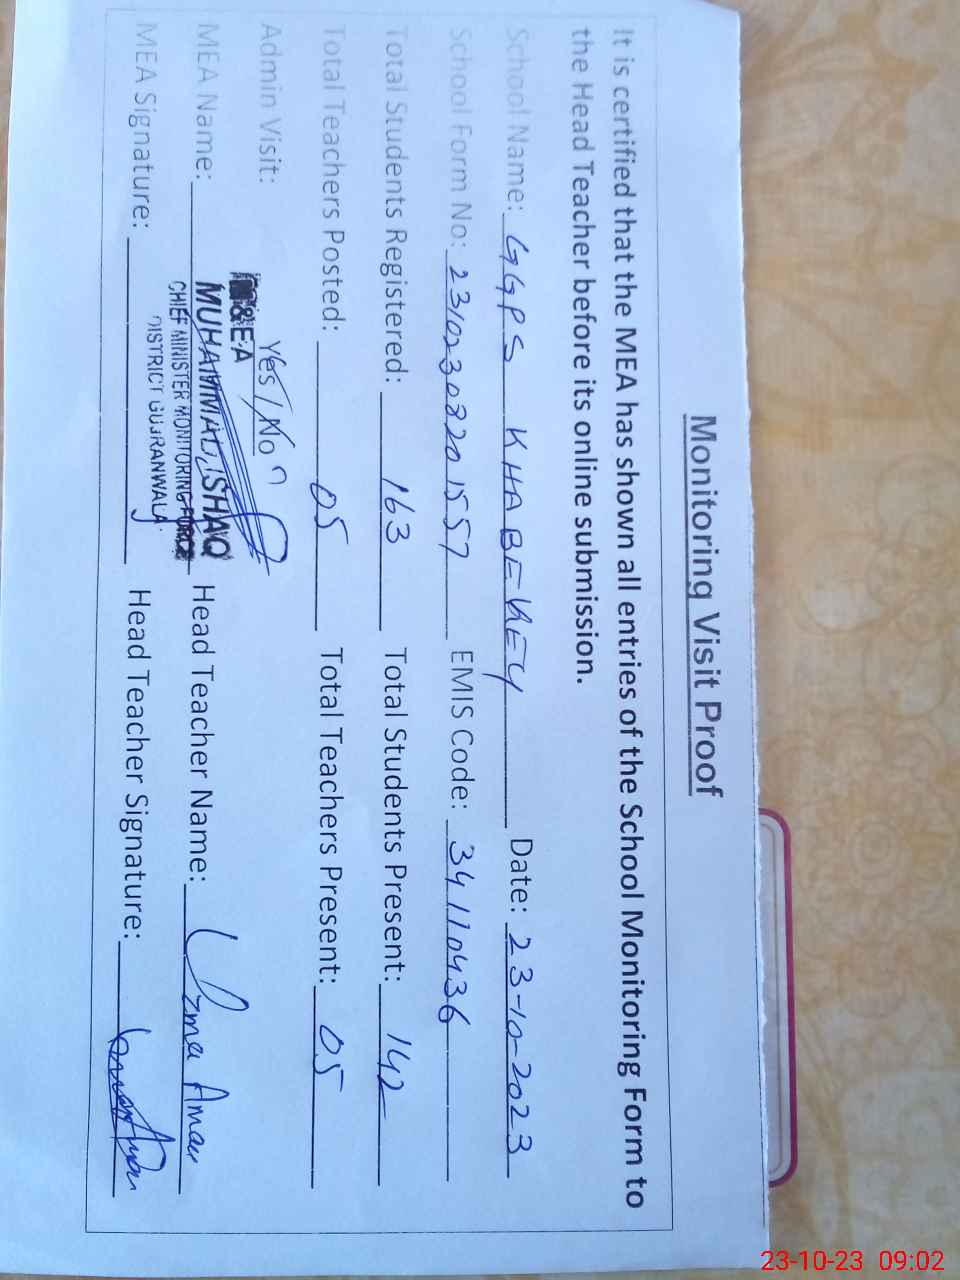 Monitoring Visit Proof
It is certified that the MEA has shown all entries of the School Monitoring Form to
the Head Teacher before its online submission.
School Name: GGPS KHABEKEY Date: 23-10-2023
School Form No: EMIS Code: 34110436
Total Students Registered: 163 Total Students Present: 142
Total Teachers Posted: 05 Total Teachers Present: 05
Admin Visit: Yes / No
M&EA
MEA Name: MUHAMMAD ISHAQ Head Teacher Name: Uzma Aman
CHIEF MINISTER MONITORING FORCE
DISTRICT GUJRANWALA
MEA Signature: Head Teacher Signature:
23-10-23 09:02